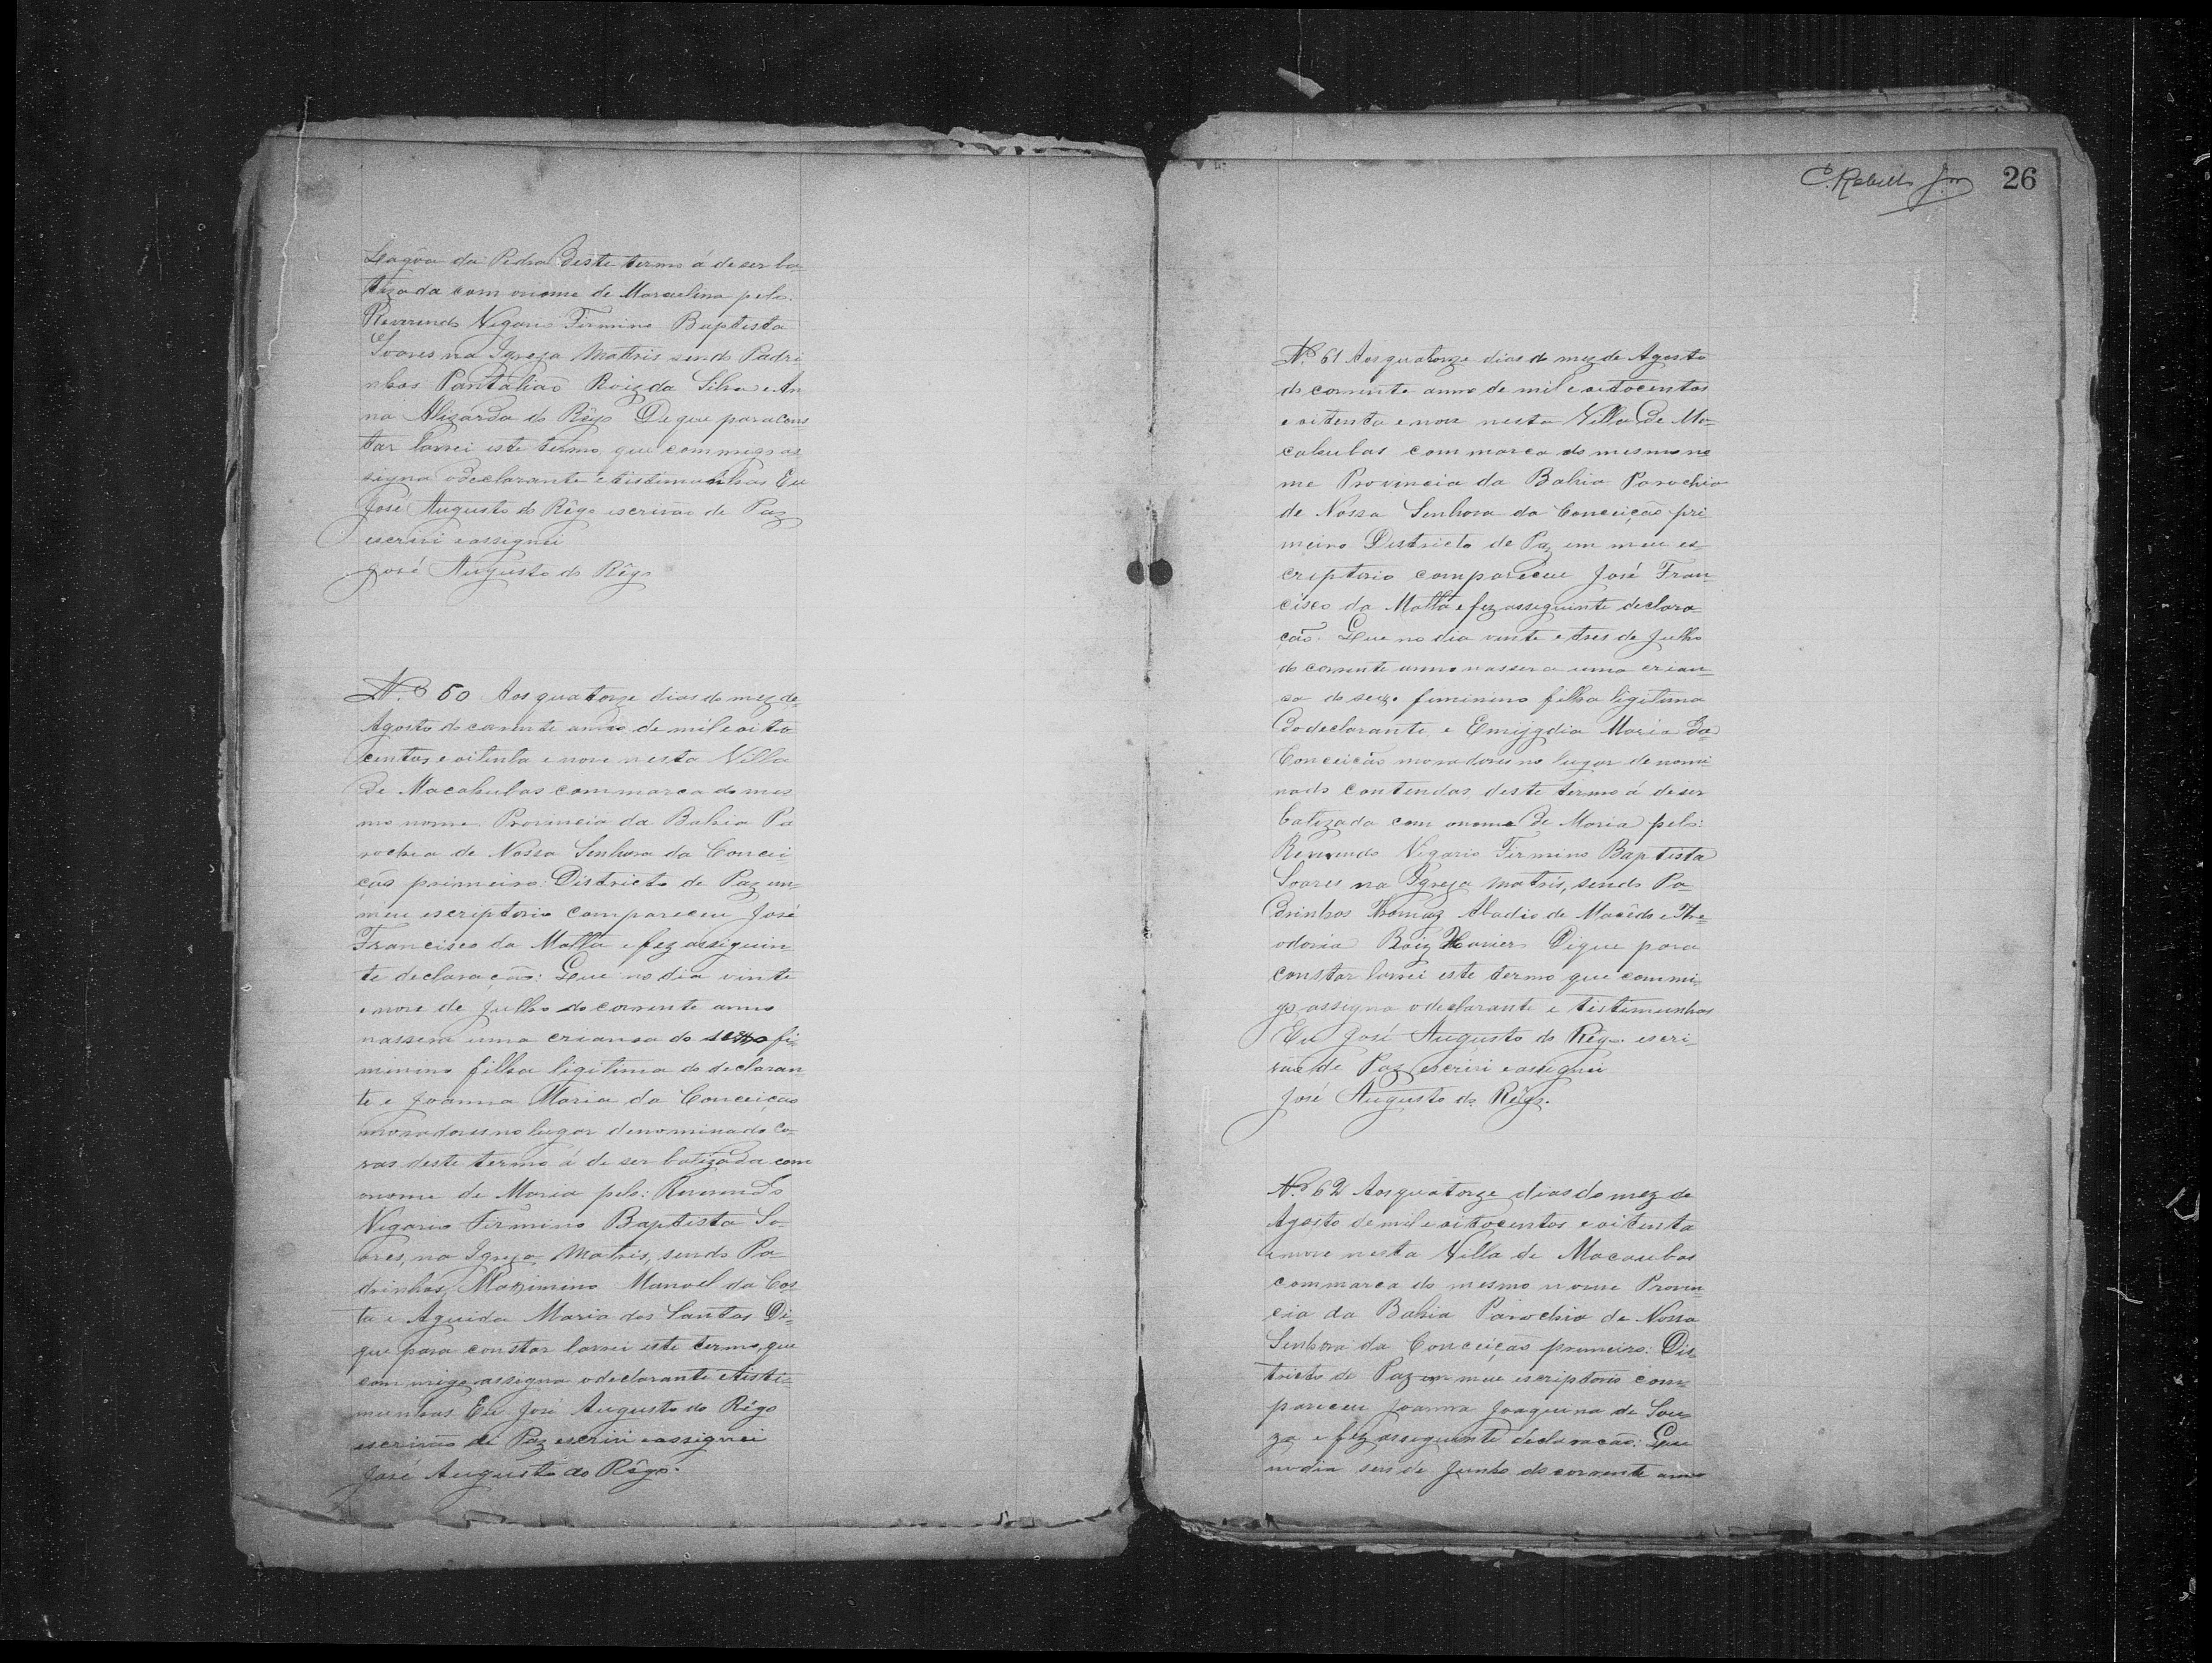 Lagôa da Pedra deste termo á de ser ba
tizada com o nome de Marculina pelo:
Reverendo Vigario Firmino Baptista
Soares na Igreja Matris sendo Padri
nhos Pantalião Roiz da Silva e An
na do Rêgo De que para cons
tar lavrei este termo, que commigo as
signa o declarante e tistimunhas Eu
José Augusto do Rêgo escrivão de Paz
escrivi e assignei
José Augusto do Rêgo
N.º 60 Aos quatorze dias do mez de
Agosto do corrente anno de mil e oito
centos e oitenta e nove nesta Villa
de Macahubas commarca do mes
mo nome Provincia da Bahia Pa
rochia de Nossa Senhora da Concei
ção primeiro: Districto de Paz em
meu escriptorio compareceu José
Francisco da Matta e fez assiguin
te declaração: Que no dia vinte
e nove de Julho do corrente anno
nassera uma criansa do sexo fi-
minino filha ligitima do declaran-
te e Joanna Maria da Conceição
moradores no lugar denominado Co-
vas deste termo á de ser batizada com
o nome de Maria pelo: Reverendo
Vigario Firmino Baptista So-
ares, na Igreja Matris, sendo Pa
drinhos Maximino Manoel da Cos-
ta e Aguida Maria dos Santos Di-
que para constar lavrei este termo, que
com migo assigna o declarante e tisti-
munhas Eu José Augusto do Rêgo
escrivão de Paz escrivi e assignei
José Augusto do Rêgo.
26
N.º 61 Aos quatorze dias do mez de Agosto
do corrente anno de mil e oitocentos
e oitenta e nove nesta Villa de Ma-
cahubas commarca do mesmo no
me Provincia da Bahia Parochia
de Nossa Senhora da Conceição pri-
meiro Districto de Paz em meu es-
criptorio compareceu José Fran-
cisco da Matta e fez asseguinte declara-
ção. Que no dia vinte e tres de Julho
do corrente anno nassera uma crian-
sa do sexo feminino filha ligitima
do declarante e Emijgdia Maria da
Conceição moradores no lugar denomi-
nado contendas deste termo á de ser
batizada com o nome de Maria pelo:
Reverendo Vigario Firmino Baptista
Soares na Igreja Matris, sendo Pa-
drinhos Thomaz Abadio de Macêdo e The-
odoria Roiz Xavier Di que para
constar lavrei este termo que commi-
go assigna o declarante e tistimunhas
Eu José Augusto do Rêgo escri-
vão de Paz escrivi e assignei
José Augusto do Rêgo.
N.º 62 Aos quatorze dias do mez de
Agosto de mil e oitocentos e oitenta
e nove nesta Villa de Macaubas
commarca do mesmo nome Provin-
cia da Bahia Parochia de Nossa
Senhora da Conceição primeiro: Dis-
tricto de Paz em meu escriptorio com-
pareceu Joanna Joaquina de Sou-
za e fez asseguinte declaração: Que
no dia seis de Junho do corrente anno